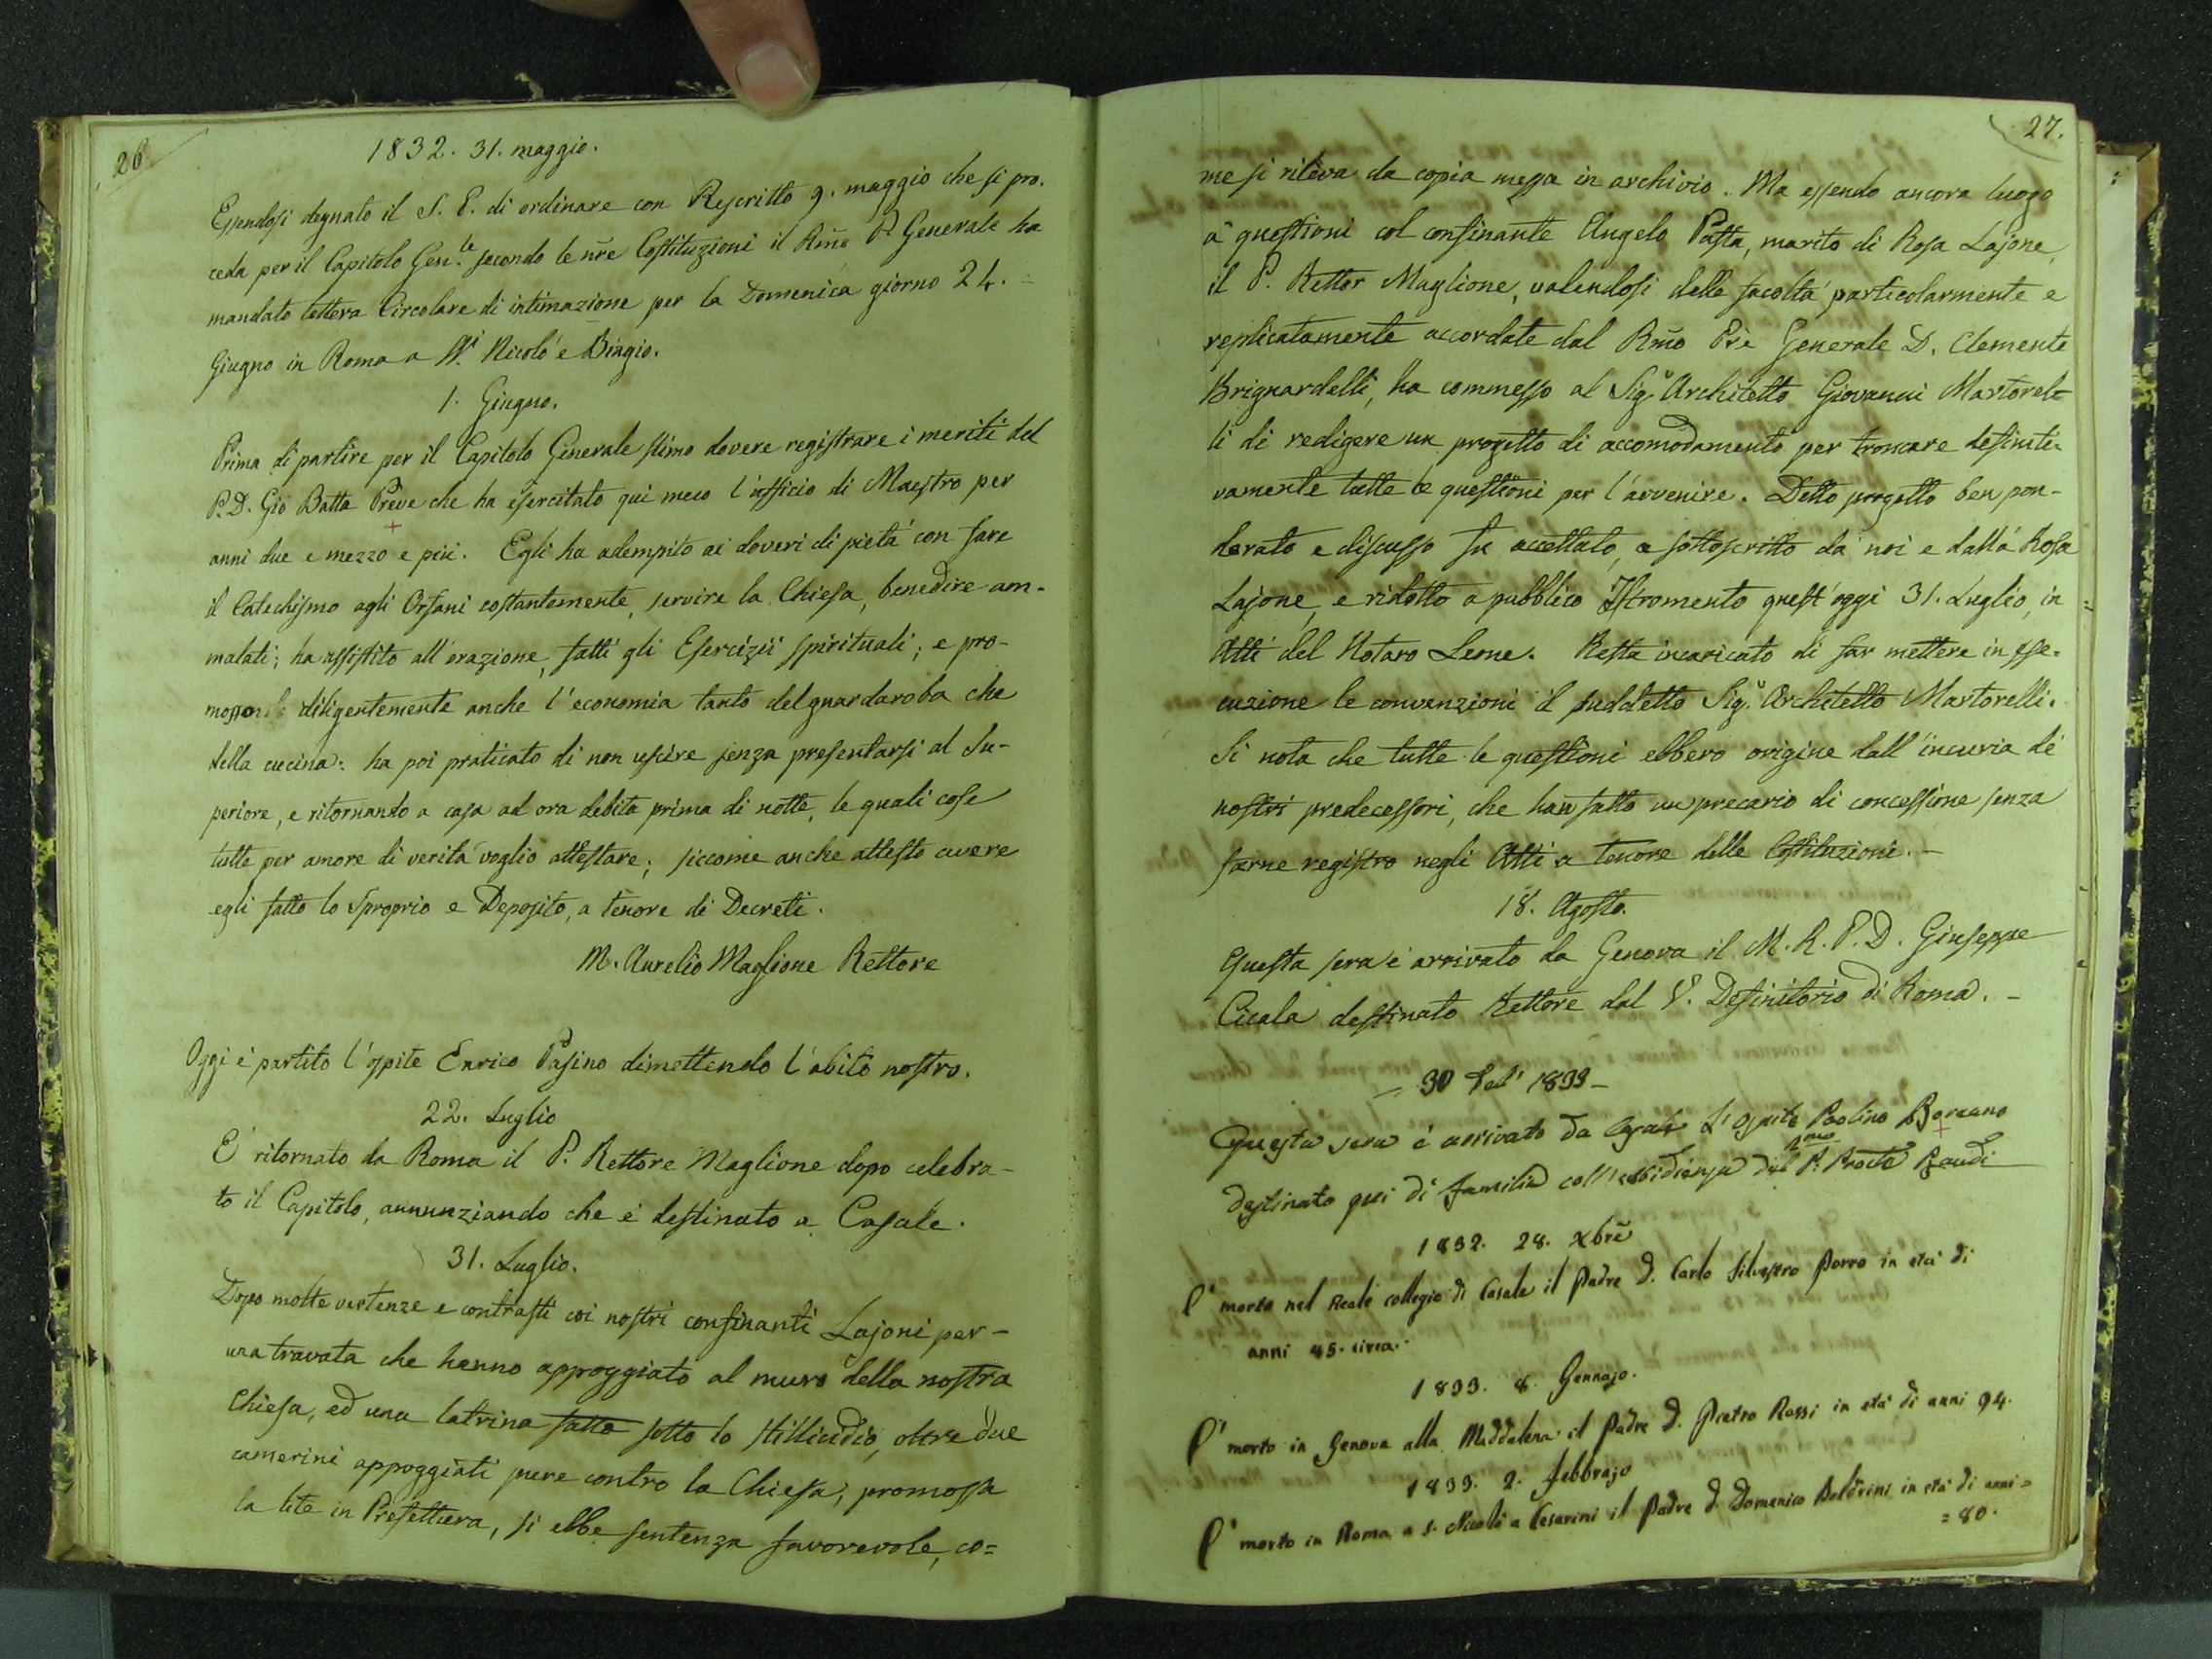 26
1832. 31. maggio.
Essendosi degnato il S. P. di ordinare con Rescritto 9. maggio che si pro.
ceda per il Capitolo Gen.le secondo le nr̃e Costituzioni il Rm̃o P. Generale ha
mandato lettera Circolare di intimazione per la Domenica giorno 24. =
Giugno in Roma a SS.i Nicolò e Biagio.
1. Giugno.
Prima di partire per il Capitolo Generale stimo dovere registrare i meriti del
P. D. Gio Batta Prève che ha esercitato qui meco l'ufficio di Maestro per
anni due e mezzo e più. Egli ha adempito ai doveri di pietà con fare
il Catechismo agli Orfani costantemente, servire la Chiesa, benedire am-
malati; ha assistito all'orazione, fatti gli Esercizii spirituali; e pro-
mosso diligentemente anche l'economia tanto del guardaroba che
della cucina: ha poi praticato di non uscire senza presentarsi al Su-
periore, e ritornando a casa ad ora debita prima di notte, le quali cose
tutte per amore di verità voglio attestare; siccome anche attesto avere
egli fatto lo Sproprio e Deposito, a tenore di Decreti.
M. Aurelio Maglione Rettore
Oggi è partito l'ospite Enrico Pasino dimettendo l'abito nostro.
22. Luglio
E' ritornato da Roma il P. Rettore Maglione dopo celebra-
to il Capitolo, annunziando che è destinato a Casale.
31. Luglio.
Dopo molte vertenze e contrasti coi nostri confinanti Lajoni per-
una travata che hanno appoggiato al muro della nostra
Chiesa, ed una latrina fatta sotto lo stillicidio, oltre due
camerini appoggiati pure contro la Chiesa, promossa
la lite in Prefettura, si ebbe sentenza favorevole, co=
27.
me si rileva da copia messa in archivio. Ma essendo ancora luogo
a questioni col confinante Angelo Pasta, marito di Rosa Lajone,
il P. Rettor Maglione, valendosi delle facoltà particolarmente e
replicatamente accordate dal Rm̃o Pr̃e Generale D. Clemente
Brignardelli, ha commesso al Sig.r Architetto Giovanni Martorel=
li di redigere un progetto di accomodamento per troncare definiti-
vamente tutte le questioni per l'avvenire. Detto progetto ben pon-
derato e discusso fu accettato, e sottoscritto da noi e dalla Rosa
Lajone, e ridotto a pubblico Istromento quest'oggi 31. Luglio, in
Atti del Notaro Leone. Resta incaricato di far mettere in ese-
cuzione le convenzioni il suddetto Sig.r Architetto Martorelli.
Si nota che tutte le questioni ebbero origine dall'incuria de
nostri predecessori, che han fatto un precario di concessione senza
farne registro negli Atti a tenore delle Costituzioni. -
18. Agosto.
Questa sera è arrivato da Genova il M. R. P. D. Giuseppe
Cicala destinato Rettore dal V. Definitorio di Roma. -
- 30 1833 -
Questa sera è arrivato da Casale L'Ospite Paolino
destinato qui di familia coll'obbidienza del R.mo P.
1832. 28. Xbrẽ
E' morto nel Reale collegio di Casale il Padre D. Carlo Silvestro Porro in età di
anni 45. circa.
1833. 8. Gennajo.
E' morto in Genova alla Maddalena il Padre D. Pietro Rossi in età di anni 94.
1833. 2. Febbrajo
E' morto in Roma a S. Nicolò a Cesarini il Padre D. Domenico Beldrini in età di anni =
= 80.